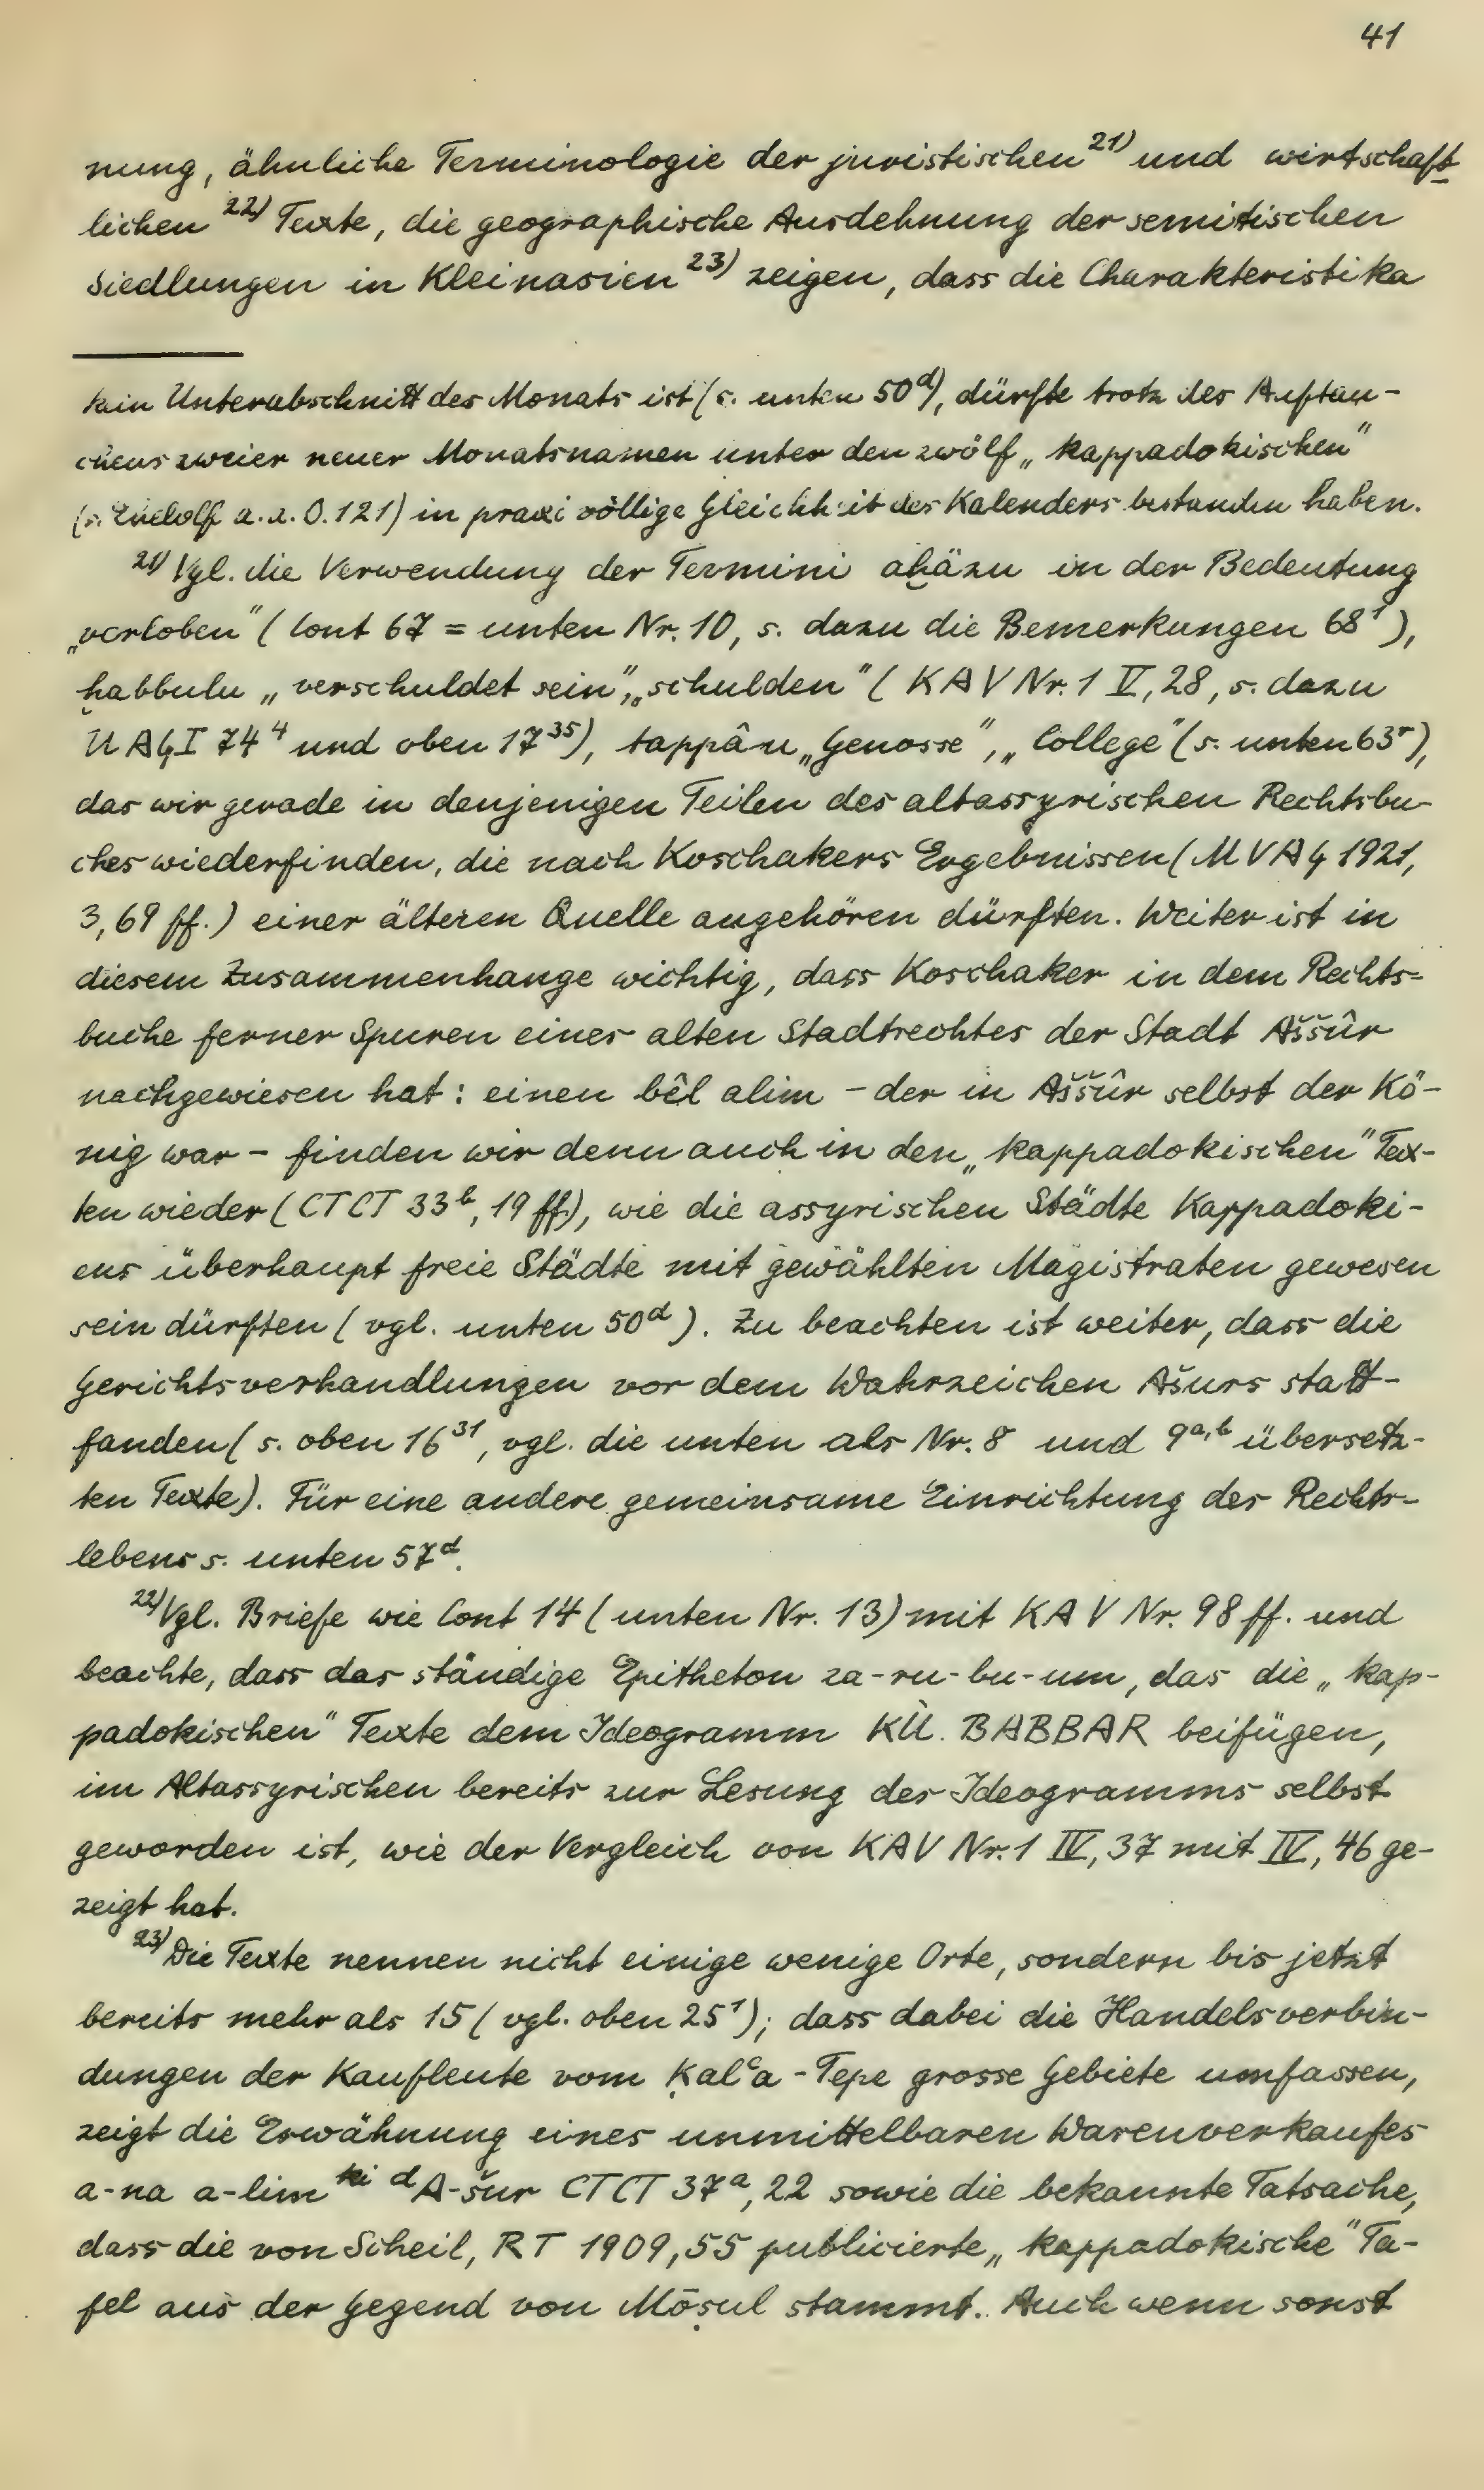 41
nung, ähnliche Terminologie der juristischen ²¹⁾ und wirtschaft
lichen ²²⁾ Texte, die geographische Ausdehnung der semitischen
Siedlungen in Kleinasien ²³⁾ zeigen, dass die Charakteristika
kein Unterabschnitt des Monats ist (s. unten 50ᵈ), dürfte trotz des Auftau-
chens zweier neuer Monatsnamen unter den zwölf „kappadokischen"
(s. a. a. O. 121) in praxi völlige Gleichheit des Kalenders bestanden haben.
²¹⁾ Vgl. die Verwendung der Termini aḫâzu in der Bedeutung
„verloben" (Cont 67 = unten Nr. 10, s. dazu die Bemerkungen 68¹),
ḫabbulu „verschuldet sein", „schulden" (KAV Nr. 1 V, 28, s. dazu
UAG I 74⁴ und oben 17³⁵), tappâu „Genosse", „College" (s. unten 63ʳ),
das wir gerade in denjenigen Teilen des altassyrischen Rechtsbu-
ches wiederfinden, die nach Koschakers Ergebnissen (MVAG 1921,
3, 69 ff.) einer älteren Quelle angehören dürften. Weiter ist in
diesem Zusammenhange wichtig, dass Koschaker in dem Rechts-
buche ferner Spuren eines alten Stadtrechtes der Stadt Aššûr
nachgewiesen hat: einen bêl alim – der in Aššûr selbst der Kö-
nig war – finden wir denn auch in den „kappadokischen" Tex-
ten wieder (CTCT 33ᵇ, 19 ff), wie die assyrischen Städte Kappadoki-
ens überhaupt freie Städte mit gewählten Magistraten gewesen
sein dürften (vgl. unten 50ᵈ). Zu beachten ist weiter, dass die
Gerichtsverhandlungen vor dem Wahrzeichen Ašurs statt-
fanden (s. oben 16³¹, vgl. die unten als Nr. 8 und 9ᵃ,ᵇ übersetz-
ten Texte). Für eine andere gemeinsame Einrichtung des Rechts-
lebens s. unten 57ᵈ.
²²⁾ Vgl. Briefe wie Cont 14 (unten Nr. 13) mit KAV Nr. 98 ff. und
beachte, dass das ständige Epitheton za-ru-bu-um, das die „kap-
padokischen" Texte dem Ideogramm KÙ. BABBAR beifügen,
im Altassyrischen bereits zur Lesung des Ideogramms selbst
geworden ist, wie der Vergleich von KAV Nr. 1 IV, 37 mit IV, 46 ge-
zeigt hat.
²³⁾ Die Texte nennen nicht einige wenige Orte, sondern bis jetzt
bereits mehr als 15 (vgl. oben 25¹); dass dabei die Handelsverbin-
dungen der Kaufleute vom Ḳalʿa-Tepe grosse Gebiete umfassen,
zeigt die Erwähnung eines unmittelbaren Warenverkaufes
a-na a-limᵏⁱ ᵈA-šur CTCT 37ᵃ, 22 sowie die bekannte Tatsache,
dass die von Scheil, RT 1909, 55 publicierte „kappadokische" Ta-
fel aus der Gegend von Mōṣul stammt. Auch wenn sonst